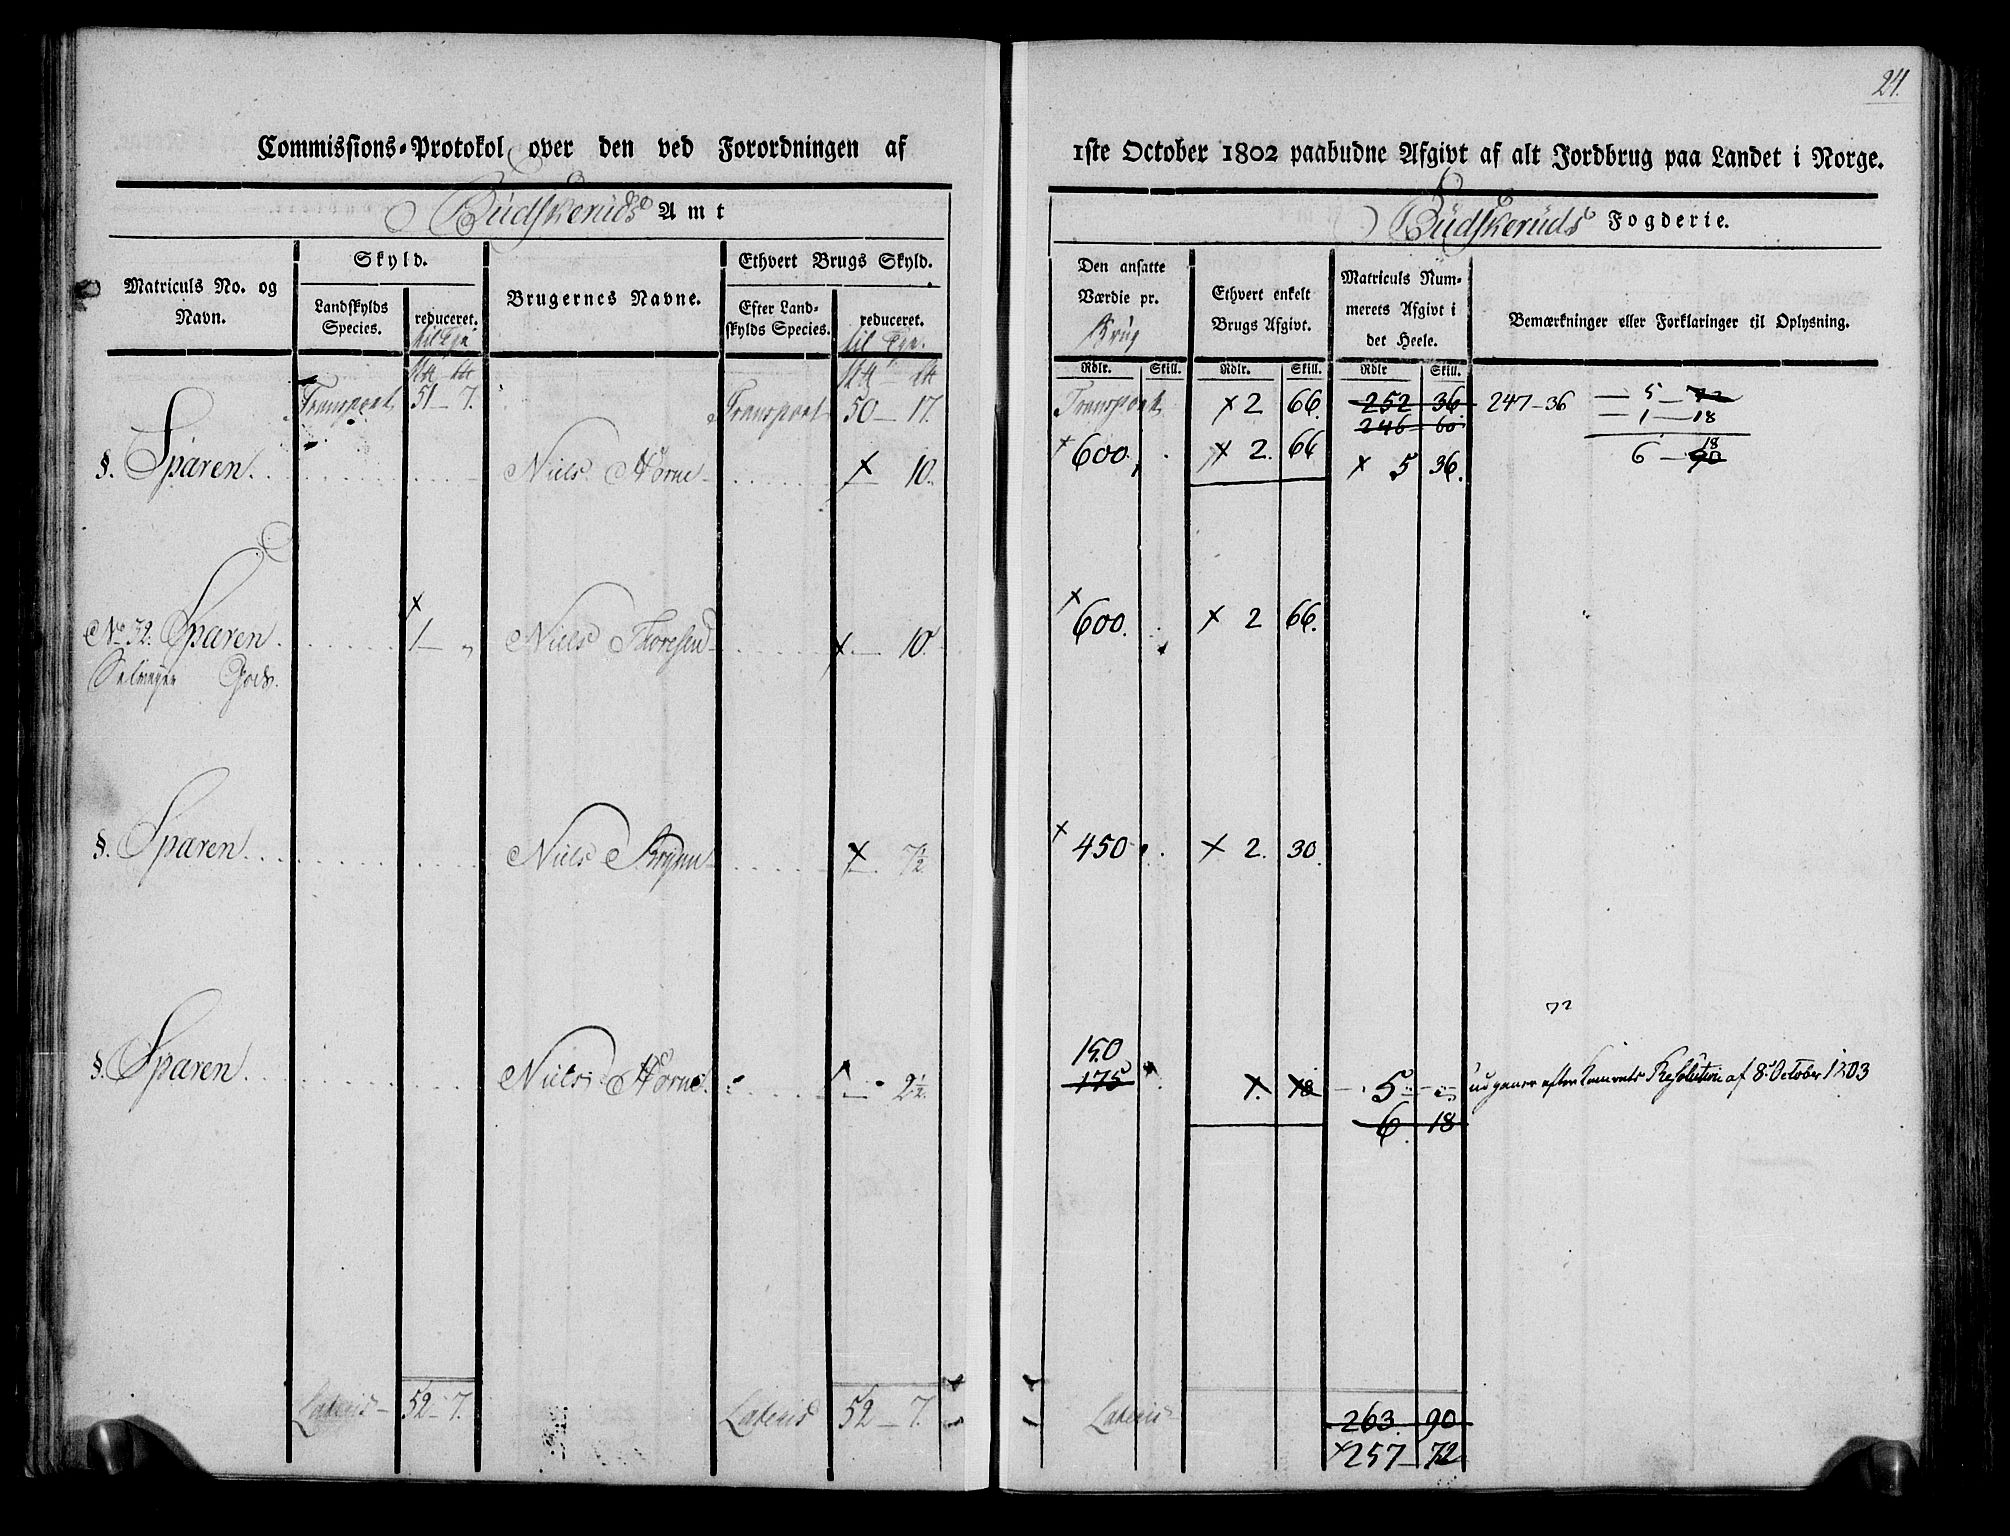 24.
Commissions-Protokol over den ved Forordningen af
1ste October 1802 paabudne Afgivt af alt Jordbrug paa Landet i Norge.
Budskeruds Amt
Budskeruds Fogderie.
Matriculs No. og Navn.
Skyld.
Landskylds Species.
reduceret.
til Tge
Brugernes Navne.
Ethvert Brugs Skyld.
Efter Landskylds Species.
reduceret.
til Tge.
Den ansatte Værdie pr.
Brug
Ethvert enkelt Brugs Afgivt.
Matriculs Nummerets Afgivt i det Heele.
Bemærkninger eller Forklaringer til Oplysning.
Rdlr. Skill. Rdlr. Skill. Rdlr Skill.
Transport 51 - 7. Transport 50 - 17. Transport x 2 66. 252 36. 247 - 36 — 5 — 72
246 60 — 1 — 18
§. Sparen. Niels Horne x 10. x 600. x 2. 66 x 5 36. 6 — 90 18
No 72. Sparen 1 - " Niels Thoresen x — 10. x 600. x 2 66.
Gods.
§. Sparen Niels x 7½ x 450 x 2. 30.
72
§. Sparen Niels Horne. 2½. 150
175 1. 18 5 udgaaer efter Resolution af 8 October 1803
6. 18
Lateris 52 - 7. Lateris 52 - 7. Lateris 263. 90
x 257 - 72